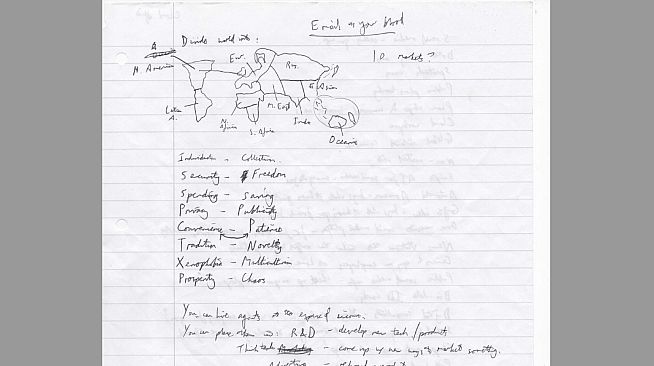 Email as your blood
Divide world into:
10 markets?
A
N. America
Eur.
Rus.
E. Asia
M. East
Latin
A.
N.
Africa
S. Africa
India
Oceania
Individualism - Collectivism.
Security - Freedom
Spending - Saving
Privacy - Publicity
Convenience - Patience
Tradition - Novelty
Xenophobia - Multiculturalism
Prosperity - Chaos
You can hire agents at the expense of income.
You can place them in: R&D - develop new tech/products
Think tank - come up w new ways to market something.
Advertising -